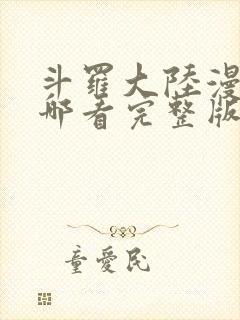 斗羅大陸漫
哪看完整版
童愛民